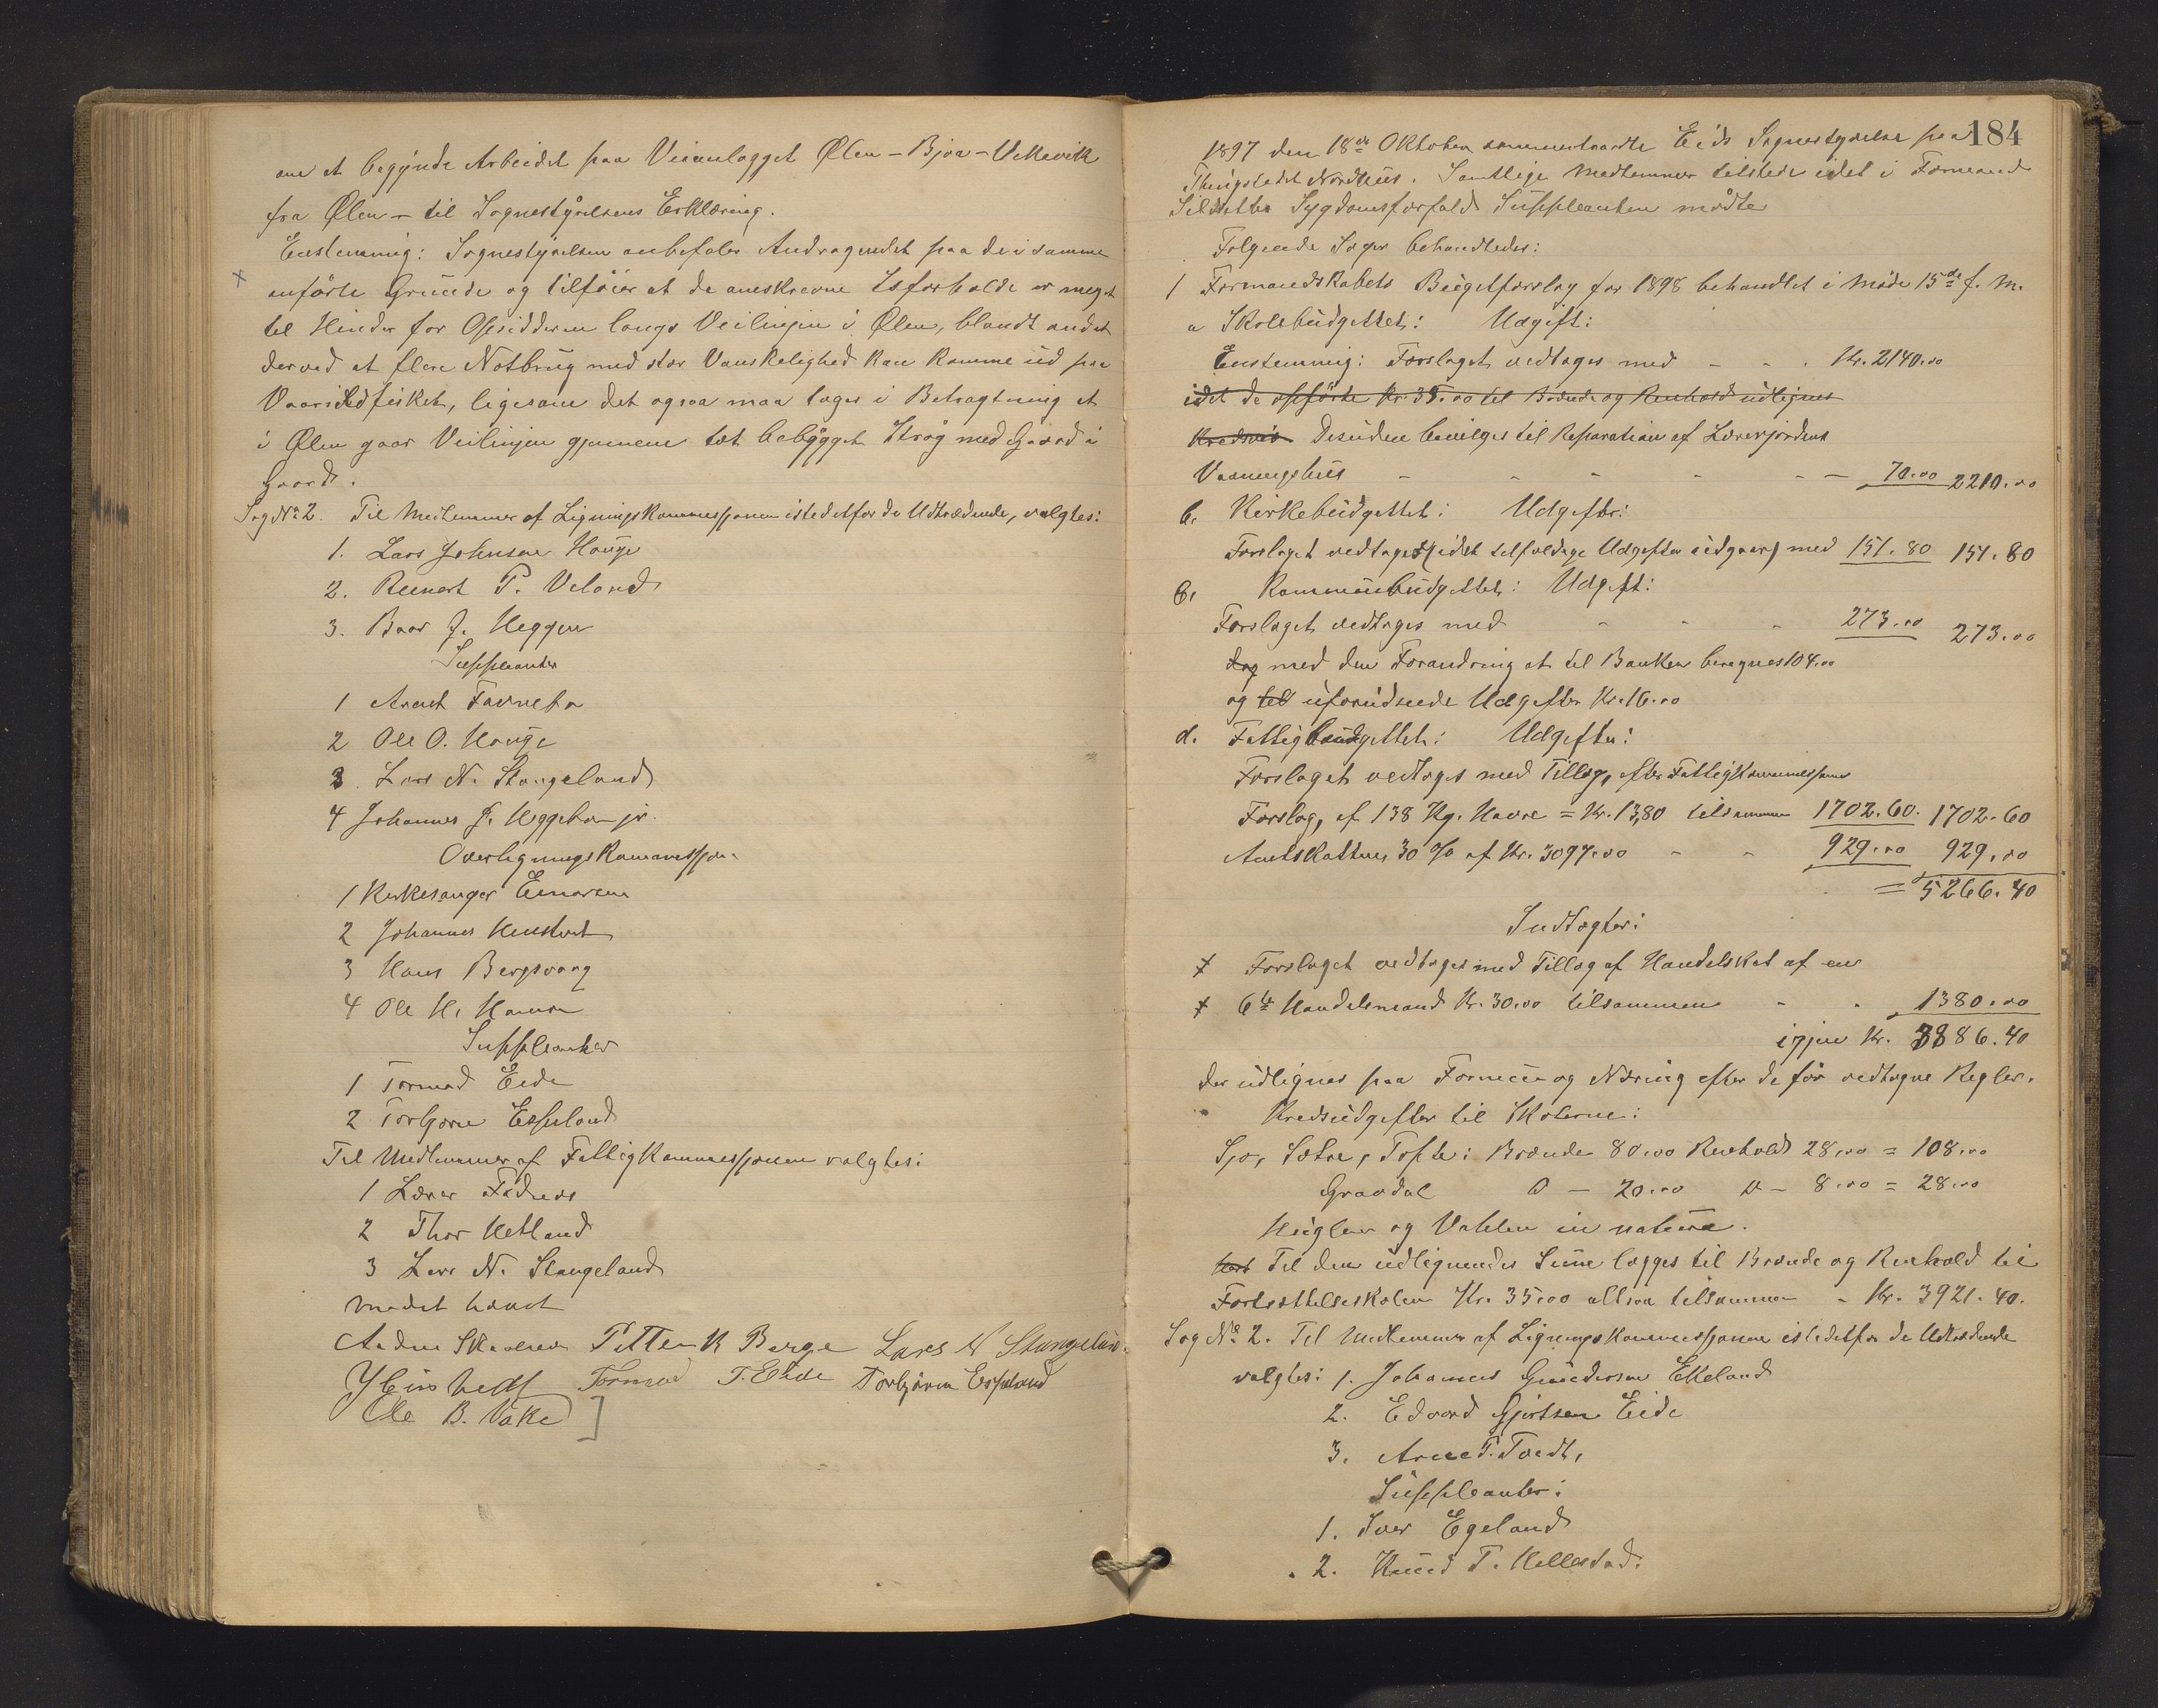 om at begynde Arbeidet paa Veianlægget Ølen – Bjoa – Vikevik
fra Ølen – til Sognestyrelsens Erklæring.
Enstemmig: Sognestyrelsen anbefaler Andragendet paa de i samme
anførte Grunde og tilføier at de omskrevne Isforholde er meget
til Hinder for Opsidderne langs Veilinjen i Ølen, blandt andet
derved at flere Notbrug med stor Vanskelighed kan komme ud paa
Vaarsildfisket, ligesom det ogsaa maa tages i Betragtning at
i Ølen gaar Veilinjen gjennem tæt bebygget Strøg med Gaard i
Gaard.
Sag No 2. Til Medlemmer af Ligningskommissjonen istedetfor de Udtrædende, valgtes:
1. Lars Johnsen Hauge
2. Reinert P. Veland
3. Baar J. Heggen
Suppleanter
1 Arent
2 Ole O. Hauge
3. Lars N. Stangeland
4 Johannes J. Heggebø jr.
Overligningskommissjon
1 Kirkesanger Einarsen
2 Johannes
3 Hans Bergsvaag
4 Ole H.
Suppleanter
1 Tormod Eide
2 Torbjørn Espeland
Til Medlemmer af Fattigkommissjonen valgtes:
1 Lærer
2 Thor Hetland
3 Lars N. Stangeland
Mødet hævet
Petter K Berge Lars N Stangeland
Tormod T. Eide Torbjørn Espeland
Ole B. Vake ]
184
1897 den 18de Oktober sammentraadte Eids Sognestyrelse paa
Thingstedet Nordhus. Samtlige Medlemmer tilstede idet i Formand
Sygdomsforfald Suppleanten mødte
Følgende Sager behandledes:
1 Formandskabets Budgetforslag for 1898 behandlet i Møde 15de f. M.
a Skolebudgettet: Udgift:
Enstemmig: Forslaget vedtages med - - . Kr. 2140.00
idet de opførte Kr. 35.00 til Brænde og Renhold udlignes
Kredsvis Desuden bevilges til Reparation af Lærerjordens
Vaaningshus - - - - - - 70.00 2210.00
b. Kirkebudgettet: Udgifter:
Forslaget vedtages (idet tilfældige Udgifter udgaar) med 151.80 151.80
c. Kommunebudgettet: Udgift:
Forslaget vedtages med - - - 273.00 273.00
dog med den Forandring at til Banken beregnes 104.00
og til uforudseede Udgifter Kr. 16.00
d. Fattigbudgettet: Udgifter:
Forslaget vedtages med Tillæg, efter Fattigkommissjonens
Forslag, af 138 Kg. Havre = Kr. 13,80 tilsammen 1702.60. 1702.60
Amtskatten 30 % af Kr. 3097.00 - - 929.00 929.00
= 5266.40
Indtægter:
Forslaget vedtages med Tillæg af Handelskat af en
6te Handelsmand Kr. 30.00 tilsammen - . 1380.00
igjen Kr. 3886.40
der udlignes paa Formue og Næring efter de før vedtagne Regler.
Kredsudgifter til Skolerne:
Sjo, Sætre, Tofte: Brænde 80.00 Renhold 28.00 = 108.00
Gravdal D – 20.00 D – 8.00 = 28.00
og Vatslen in natura.
Til den udlignendes Sum lægges til Brænde og Renhold til
Fortsættelseskolen Kr. 35.00 altsaa tilsammen - Kr. 3921.40.
Sag No 2. Til Medlemmer af Ligningskommissjonen istedetfor de Udtrædende
valgtes: 1. Johannes Gundersen Ekeland
2. Edvard Gjertsen Eide
3. Arne T. Tvedt,
Suppleanter:
1. Iver Egeland
2. Knud T. Hellestad.